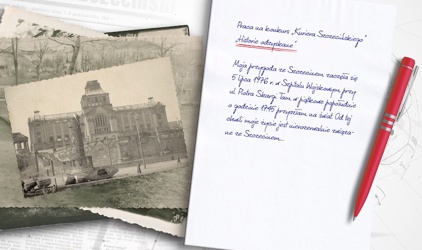 Praca na konkurs „Kuriera Szczecińskiego"
„Historie odzyskane"
Moja przygoda ze Szczecinem zaczęła się
5 lipca 1976 r. w Szpitalu Wojskowym przy
ul. Piotra Skargi. Tam w piątkowe popołudnie
o godzinie 17.45 przyszłam na świat. Od tej
chwili moje życie jest nierozerwalnie związa-
ne ze Szczecinem.